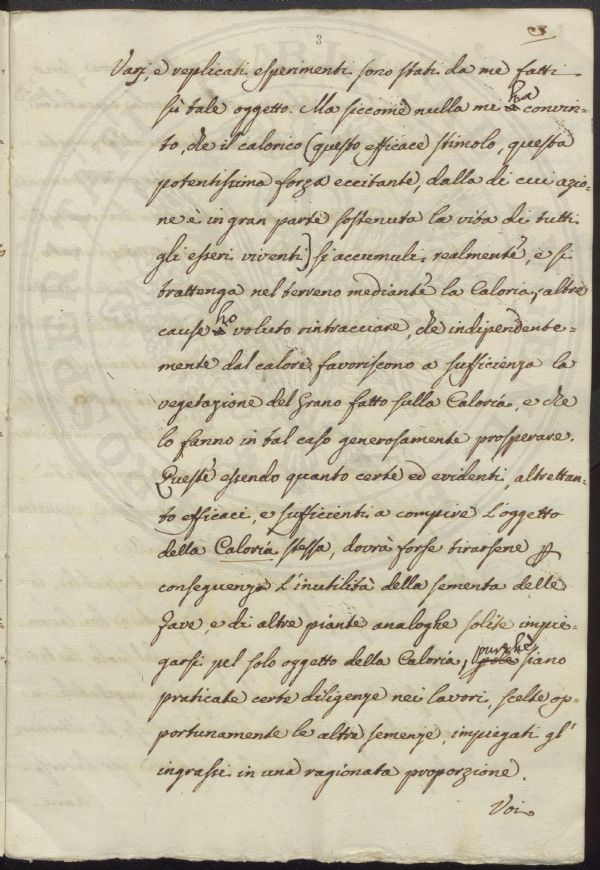 3
Varj, e replicati esperimenti sono stati da me fatti
sù tale oggetto. Ma siccome nulla me ha convin-
to, che il calorico (questo efficace stimolo, questa
potentissima forza eccitante, dalla di cui azio-
ne è in gran parte sostenuta la vita di tutti
gli esseri viventi) si accumuli realmente, e si
trattenga nel terreno mediante la Caloria, altre
cause ho voluto rintracciare, che indipendente=
mente dal calore favoriscono a sufficienza la
vegetazione del Grano fatto sulla Caloria, e che
lo fanno in tal caso generosamente prosperare.
Queste essendo quanto certe ed evidenti, altrettan-
to efficaci, e sufficienti a compire l'oggetto
della Caloria stessa, dovrà forse tirarsene
conseguenza l'inutilità della sementa delle
Fave, e di altre piante analoghe solite impie-
garsi pel solo oggetto della Caloria, purchè siano
praticate certe diligenze nei lavori, scelte op=
portunamente le altre semenze, impiegati gl'
ingrassi in una ragionata proporzione.
Voi